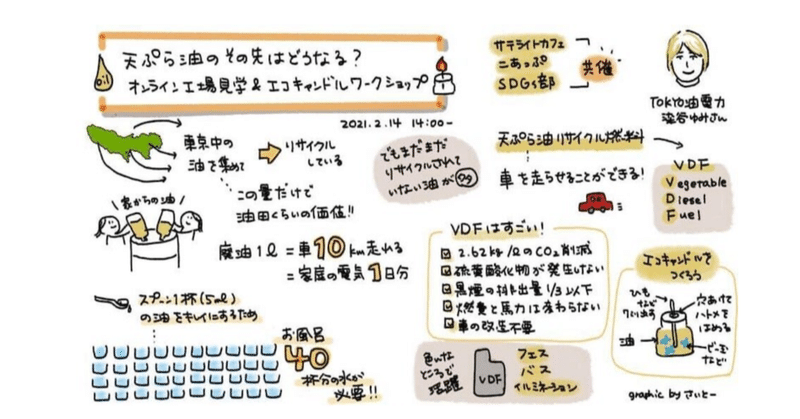 天ぷら油のその先はどうなる?
オンライン工場見学&エコキャンドルワークショップ
2021.2.14 14:00-
サテライトカフェ
こあっぷ
SDGs部
共催
TOKYO油電力
染谷ゆみさん
東京中の
油を集めて
リサイクル
している
この量だけで
油田くらいの価値!!
でもまだまだ
リサイクルされて
いない油が
天ぷら油リサイクル燃料
車を走らせることができる!
VDF
Vegetable
Diesel
Fuel
家からの油
廃油1ℓ=車10km走れる
=家庭の電気1日分
VDFはすごい!
2.62kg/ℓのCO₂削減
硫黄酸化物が発生しない
黒煙の排出量1/3以下
燃費と馬力は変わらない
車の改造不要
エコキャンドルを
つくろう
ひも
など
穴あけて
ハトメを
はめる
油
ビー玉
など
スプーン1杯(5mℓ)
の油をキレイにするため
お風呂
40
杯分の水が
必要!!
色んな
ところで
活躍
VDF
フェス
バス
イルミネーション
graphic by さいとー